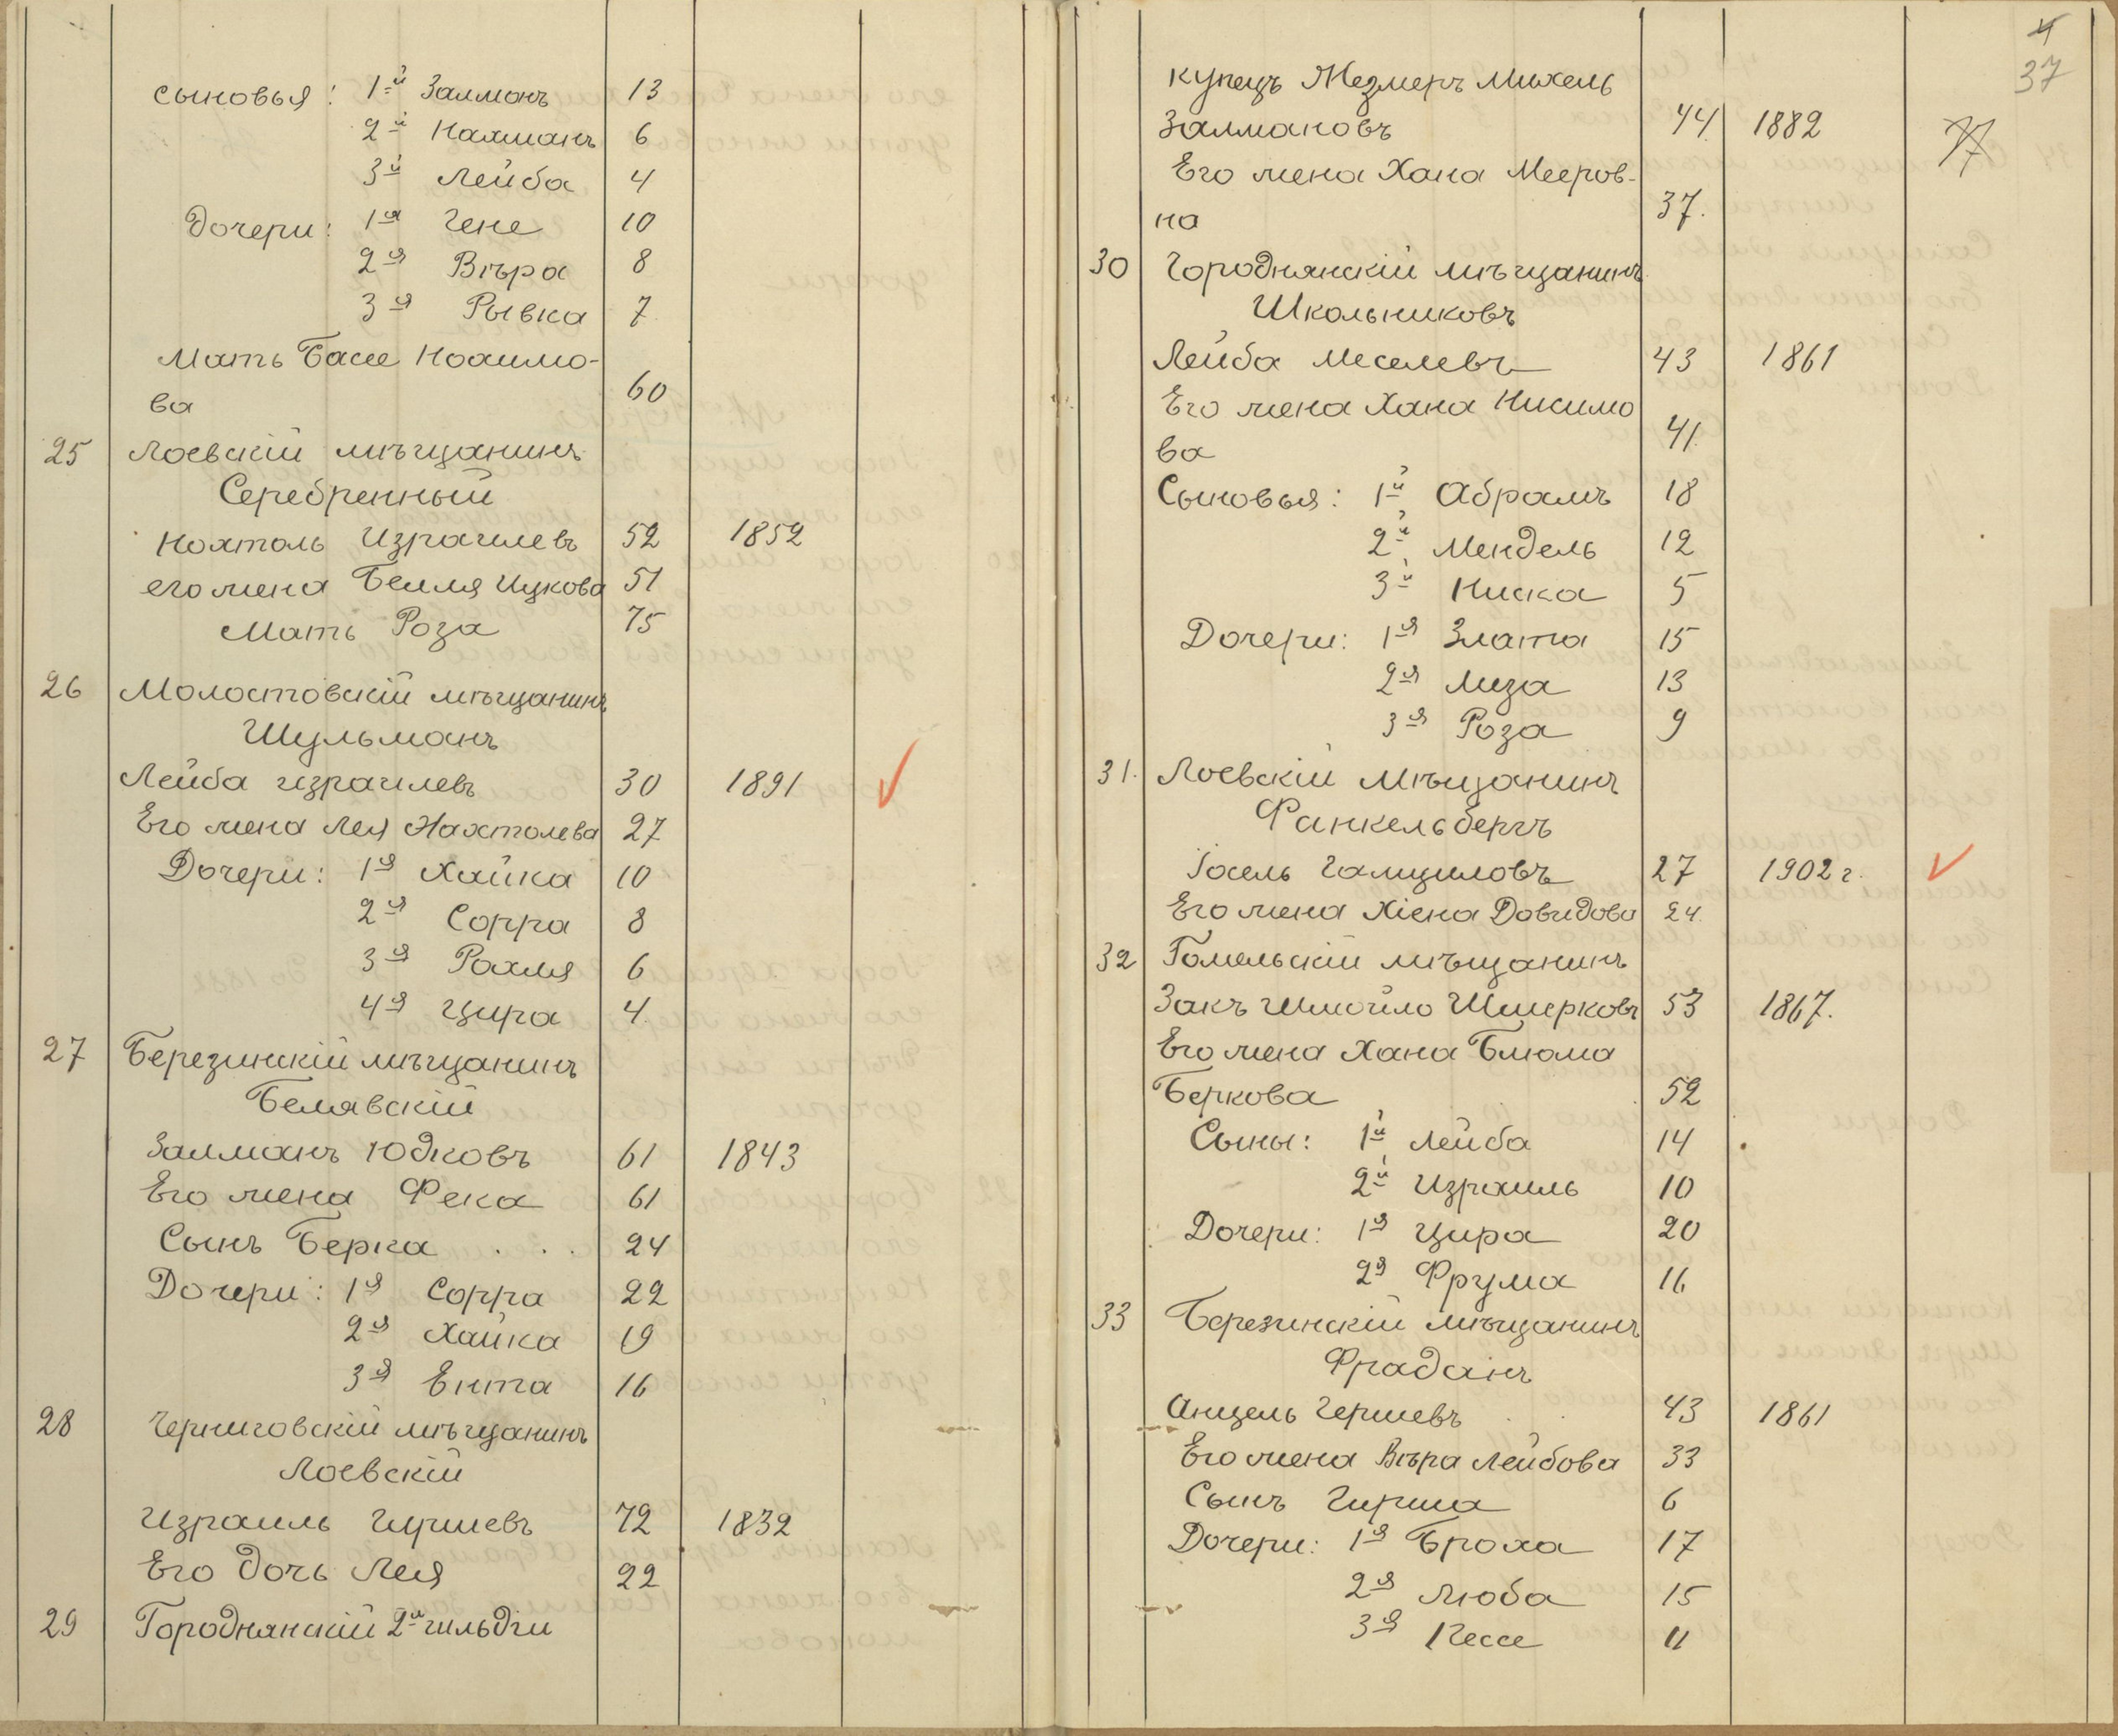 сыновья: 1й Залманъ 13
2й Нахманъ 6
3й Лейба 4
Дочери: 1я Гене 10
2я Вѣра 8
3я Рывка 7
Мать Басе Нохимо-
ва 60
25 Лоевскій мѣщанинъ
Серебренный
Нохтоль Израилевъ 52 1852
его жена Бейля Ицкова 51
Мать Роза 75
26 Молостовскій мѣщанинъ
Шульманъ
Лейба израилевъ 30 1891 ✓
Его жена Лея Нахтолева 27
Дочери: 1я Хайка 10
2я Сорра 8
3я Рахля 6
4я Цира 4
27 Березинскій мѣщанинъ
Белявскій
Залманъ Юдковъ 61 1843
Его жена Фека 61
Сынъ Берка . . . 24
Дочери: 1я Сорра 22
2я Хайка 19
3я Ента 16
28 Черниговскій мѣщанинъ
Лоевскій
Израиль Гиршевъ 72 1832
Его дочь Лея 22
29 Городнянскій 2й гильдіи
37
купецъ Жезмеръ Михель
Залмановъ 44 1882
Его жена Хана Мееров-
на 37.
30 Городнянскій мѣщанинъ
Школьниковъ
Лейба Меселевъ 43 1861
Его жена Хана Нисимо
ва 41
Сыновья: 1й Абрамъ 18
2й Мендель 12
3й Ниска 5
Дочери: 1я Злата 15
2я Лиза 13
3я Роза 9
31. Лоевскій Мѣщанинъ
Фанкельбергъ
Іосель Галициловъ 27 1902 г. ✓
Его жена Хіена Довидова 24.
32 Гомельскій мѣщанинъ
Закъ Шмойло Шмерковъ 53 1867.
Его жена Хана Блюма
Беркова 52
Сыны: 1й Лейба 14
2й Израиль 10
Дочери: 1я Цира 20
2я Фрума 16
33 Березинскій мѣщанинъ
Фрадинъ
Анцель Гершевъ . . 43 1861
Его жена Вѣра Лейбова 33
Сынъ Гирша 6
Дочери: 1я Броха 17
2я Люба 15
3я Песе 11